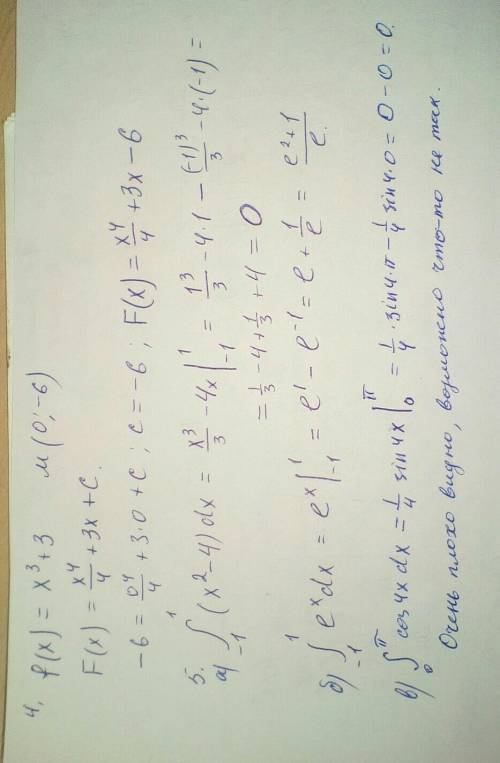 4. f(x) = x³+3 м(0;-6)
F(x) = x⁴/4 + 3x + C.
-6 = 0⁴/4 + 3·0 + C ; c = -6 ; F(x) = x⁴/4 + 3x - 6
5.
а) ∫₋₁¹ (x²-4)dx = x³/3 - 4x |₋₁¹ = 1³/3 - 4·1 - (-1)³/3 - 4·(-1) =
= 1/3 - 4 + 1/3 + 4 = 0
б) ∫₋₁¹ eˣdx = eˣ |₋₁¹ = e¹ - e⁻¹ = e + 1/e = e²+1/e.
в) ∫₀^π cos4x dx = 1/4 sin4x |₀^π = 1/4 · sin4·π - 1/4 sin4·0 = 0 - 0 = 0.
Очень плохо видно, возможно что-то не так.